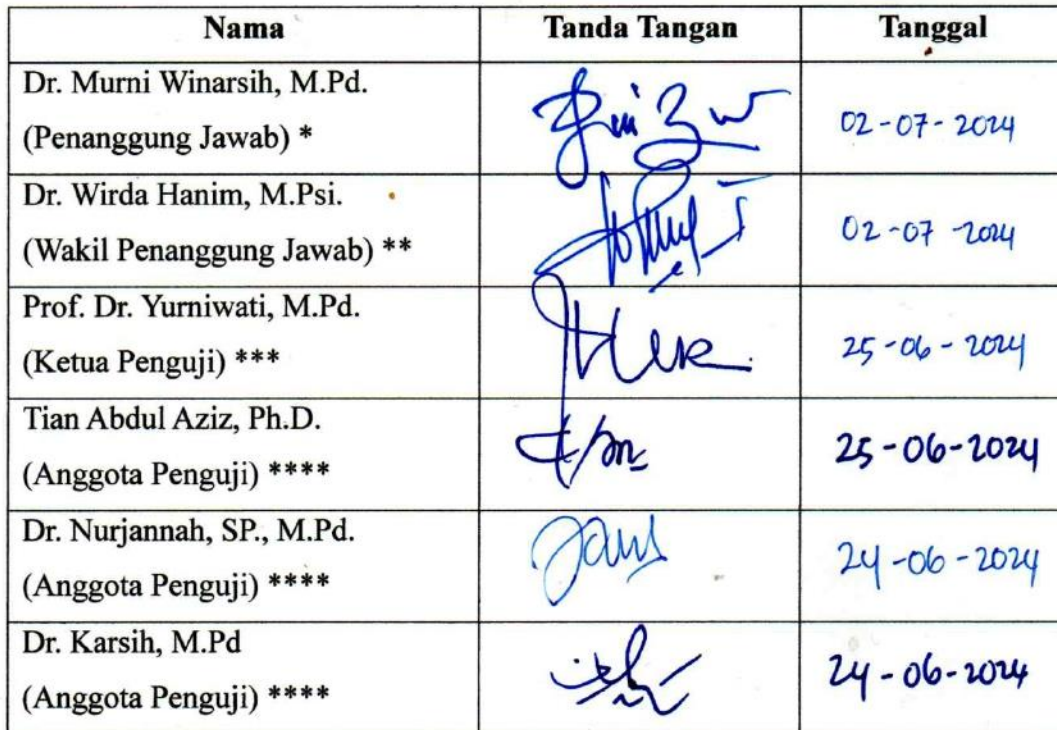 Nama Tanda Tangan Tanggal
Dr. Murni Winarsih, M.Pd.
(Penanggung Jawab) * 02-07-2024
Dr. Wirda Hanim, M.Psi.
(Wakil Penanggung Jawab) ** 02-07-2024
Prof. Dr. Yurniwati, M.Pd.
(Ketua Penguji) *** 25-06-2024
Tian Abdul Aziz, Ph.D.
(Anggota Penguji) **** 25-06-2024
Dr. Nurjannah, SP., M.Pd.
(Anggota Penguji) **** 24-06-2024
Dr. Karsih, M.Pd
(Anggota Penguji) **** 24-06-2024